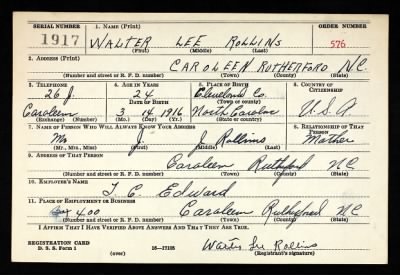 SERIAL NUMBER 1. NAME (Print) ORDER NUMBER
1917 WALTER LEE ROLLINS 576
(First) (Middle) (Last)
2. ADDRESS (Print)
CAROLEEN RUTHERFORD N.C.
(Number and street or R. F. D. number) (Town) (County) (State)
3. TELEPHONE 4. AGE IN YEARS 5. PLACE OF BIRTH 6. COUNTRY OF CITIZENSHIP
26 J 24 Cleveland Co.
DATE OF BIRTH (Town or county)
Caroleen 3 14 1916 North Carolina U.S.A
(Exchange) (Number) (Mo.) (Day) (Yr.) (State or country)
7. NAME OF PERSON WHO WILL ALWAYS KNOW YOUR ADDRESS 8. RELATIONSHIP OF THAT PERSON
Mr J J Rollins Mother
(Mr., Mrs., Miss) (First) (Middle) (Last)
9. ADDRESS OF THAT PERSON
Caroleen NC
(Number and street or R. F. D. number) (Town) (County) (State)
10. EMPLOYER'S NAME
T. C. Edward
11. PLACE OF EMPLOYMENT OR BUSINESS
400 Caroleen NC
(Number and street or R. F. D. number) (Town) (County) (State)
I AFFIRM THAT I HAVE VERIFIED ABOVE ANSWERS AND THAT THEY ARE TRUE.
REGISTRATION CARD
D. S. S. Form 1 (over) 16—17105 Lee Rollins
(Registrant's signature)